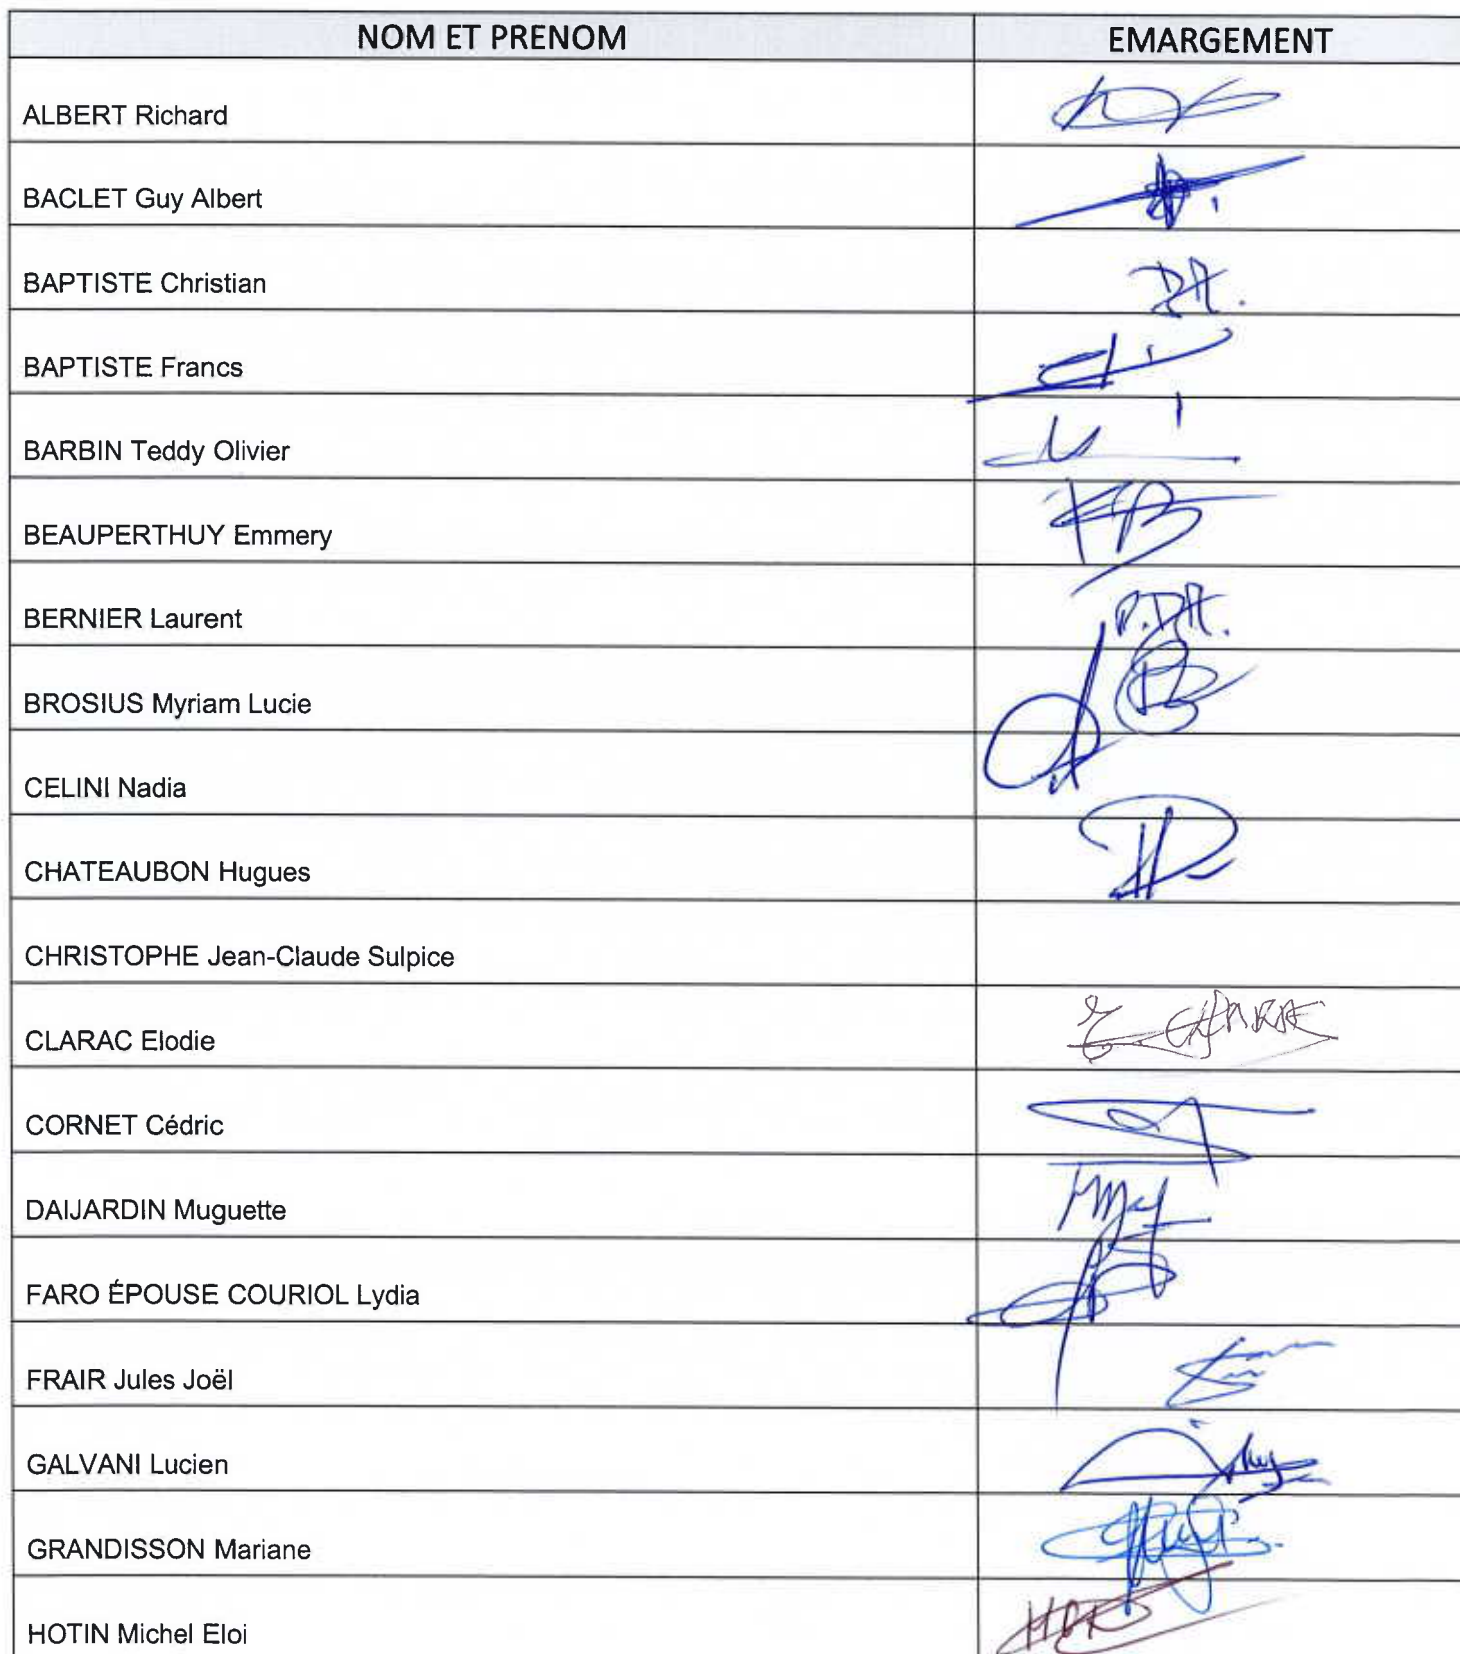 NOM ET PRENOM EMARGEMENT
ALBERT Richard
BACLET Guy Albert
BAPTISTE Christian
BAPTISTE Francs
BARBIN Teddy Olivier
BEAUPERTHUY Emmery
BERNIER Laurent
BROSIUS Myriam Lucie
CELINI Nadia
CHATEAUBON Hugues
CHRISTOPHE Jean-Claude Sulpice
CLARAC Elodie
CORNET Cédric
DAIJARDIN Muguette
FARO ÉPOUSE COURIOL Lydia
FRAIR Jules Joël
GALVANI Lucien
GRANDISSON Mariane
HOTIN Michel Eloi